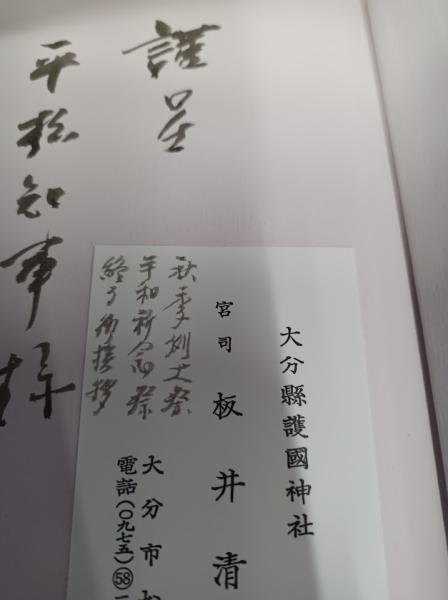 謹呈
平松知事様
大分縣護國神社
宮司 板井清
秋季例大祭
平和祈念祭
終了御挨拶
大分市松
電話(〇九七五)58